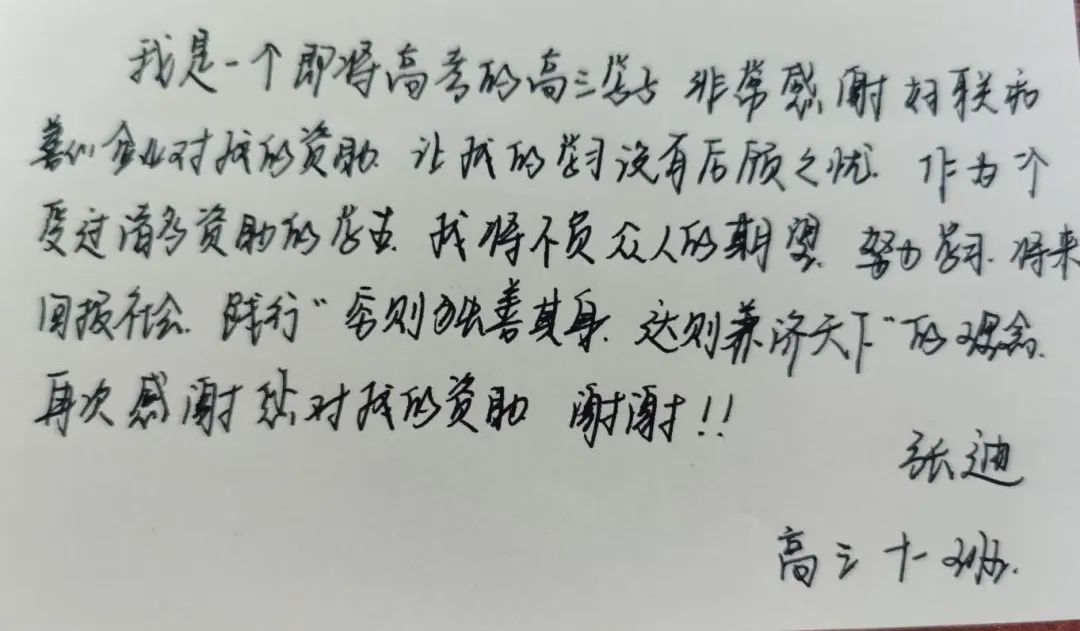 我是一个即将高考的高三学生 非常感谢妇联和
爱心企业对我的资助 让我的学习没有后顾之忧. 作为一个
受过诸多资助的学生. 我将不负众人的期望. 努力学习. 将来
回报社会. 践行“穷则独善其身. 达则兼济天下”的观念.
再次感谢您对我的资助 谢谢!!
张迪
高三十一班.